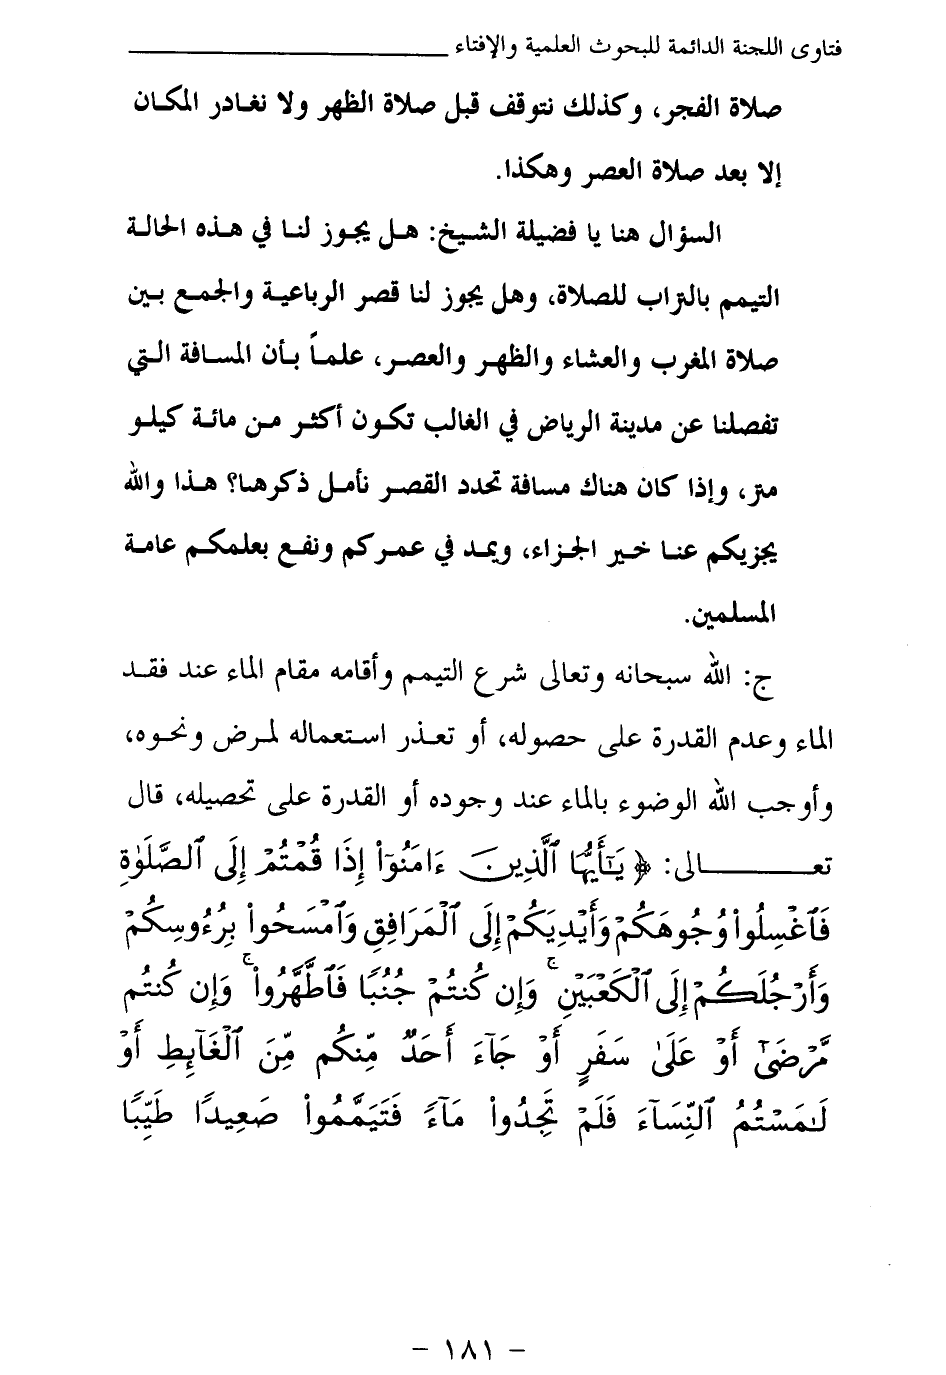 فتاوى اللجنة الدائمة للبحوث العلمية والإفتاء
صلاة الفجر، وكذلك نتوقف قبل صلاة الظهر ولا نغادر المكان
إلا بعد صلاة العصر وهكذا.
السؤال هنا يا فضيلة الشيخ: هل يجوز لنا في هذه الحالة
التيمم بالتراب للصلاة، وهل يجوز لنا قصر الرباعية والجمع بين
صلاة المغرب والعشاء والظهر والعصر، علماً بأن المسافة التي
تفصلنا عن مدينة الرياض في الغالب تكون أكثر من مائة كيلو
متر، وإذا كان هناك مسافة تحدد القصر نأمل ذكرها؟ هذا والله
يجزيكم عنا خير الجزاء، ويمد في عمركم ونفع بعلمكم عامة
المسلمين.
ج: الله سبحانه وتعالى شرع التيمم وأقامه مقام الماء عند فقد
الماء وعدم القدرة على حصوله، أو تعذر استعماله لمرض ونحوه،
وأوجب الله الوضوء بالماء عند وجوده أو القدرة على تحصيله، قال
تعالى: ﴿ يَٰٓأَيُّهَا ٱلَّذِينَ ءَامَنُوٓا۟ إِذَا قُمْتُمْ إِلَى ٱلصَّلَوٰةِ
فَٱغْسِلُوا۟ وُجُوهَكُمْ وَأَيْدِيَكُمْ إِلَى ٱلْمَرَافِقِ وَٱمْسَحُوا۟ بِرُءُوسِكُمْ
وَأَرْجُلَكُمْ إِلَى ٱلْكَعْبَيْنِ ۚ وَإِن كُنتُمْ جُنُبًا فَٱطَّهَّرُوا۟ ۚ وَإِن كُنتُم
مَّرْضَىٰٓ أَوْ عَلَىٰ سَفَرٍ أَوْ جَآءَ أَحَدٌ مِّنكُم مِّنَ ٱلْغَآئِطِ أَوْ
لَٰمَسْتُمُ ٱلنِّسَآءَ فَلَمْ تَجِدُوا۟ مَآءً فَتَيَمَّمُوا۟ صَعِيدًا طَيِّبًا
- ١٨١ -